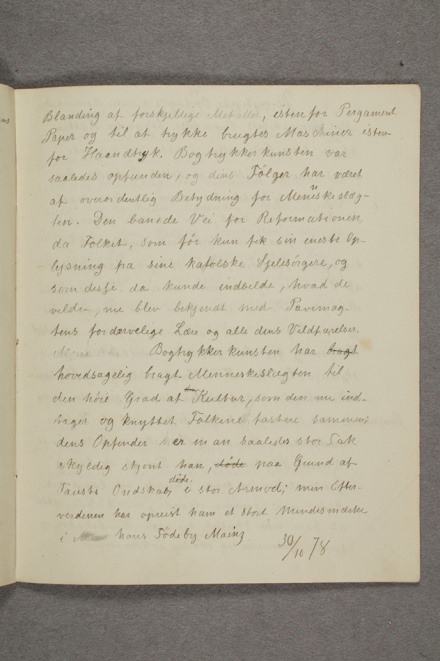 Blanding af forskjellige Metaller, istenfor Pergament
Papir og til at trykke brugtes Maskiner isten-
for Haandtryk. Bogtrykkerkunsten var
saaledes opfunden, og dens Følger har været
af overordentlig Betydning for Menneskeslæg-
ten. Den banede Vei for Reformationen
da Folket, som før kun fik sin eneste Op-
lysning fra sine katolske Sjelesørgere, og
som disse da kunde indbilde, hvad de
vilde, nu blev bekjendt med Pavemag-
tens fordærvelige Lære og alle dens Voldsfærelser.
Bogtrykkerkunsten har bragt
hovedsagelig bragt Menneskeslægten til
den høie Grad af Kultur, som den nu ind-
tager og knyttet Folkene fastere sammen;
dens Opfinder er man saaledes stor Tak
skyldig skjønt han, døde paa Grund af
døde
Fausts Ondskab, i stor Armod; men Efter-
verdenen har opreist ham et stort Mindesmærke
i hans Fødeby Mainz
30/10 78